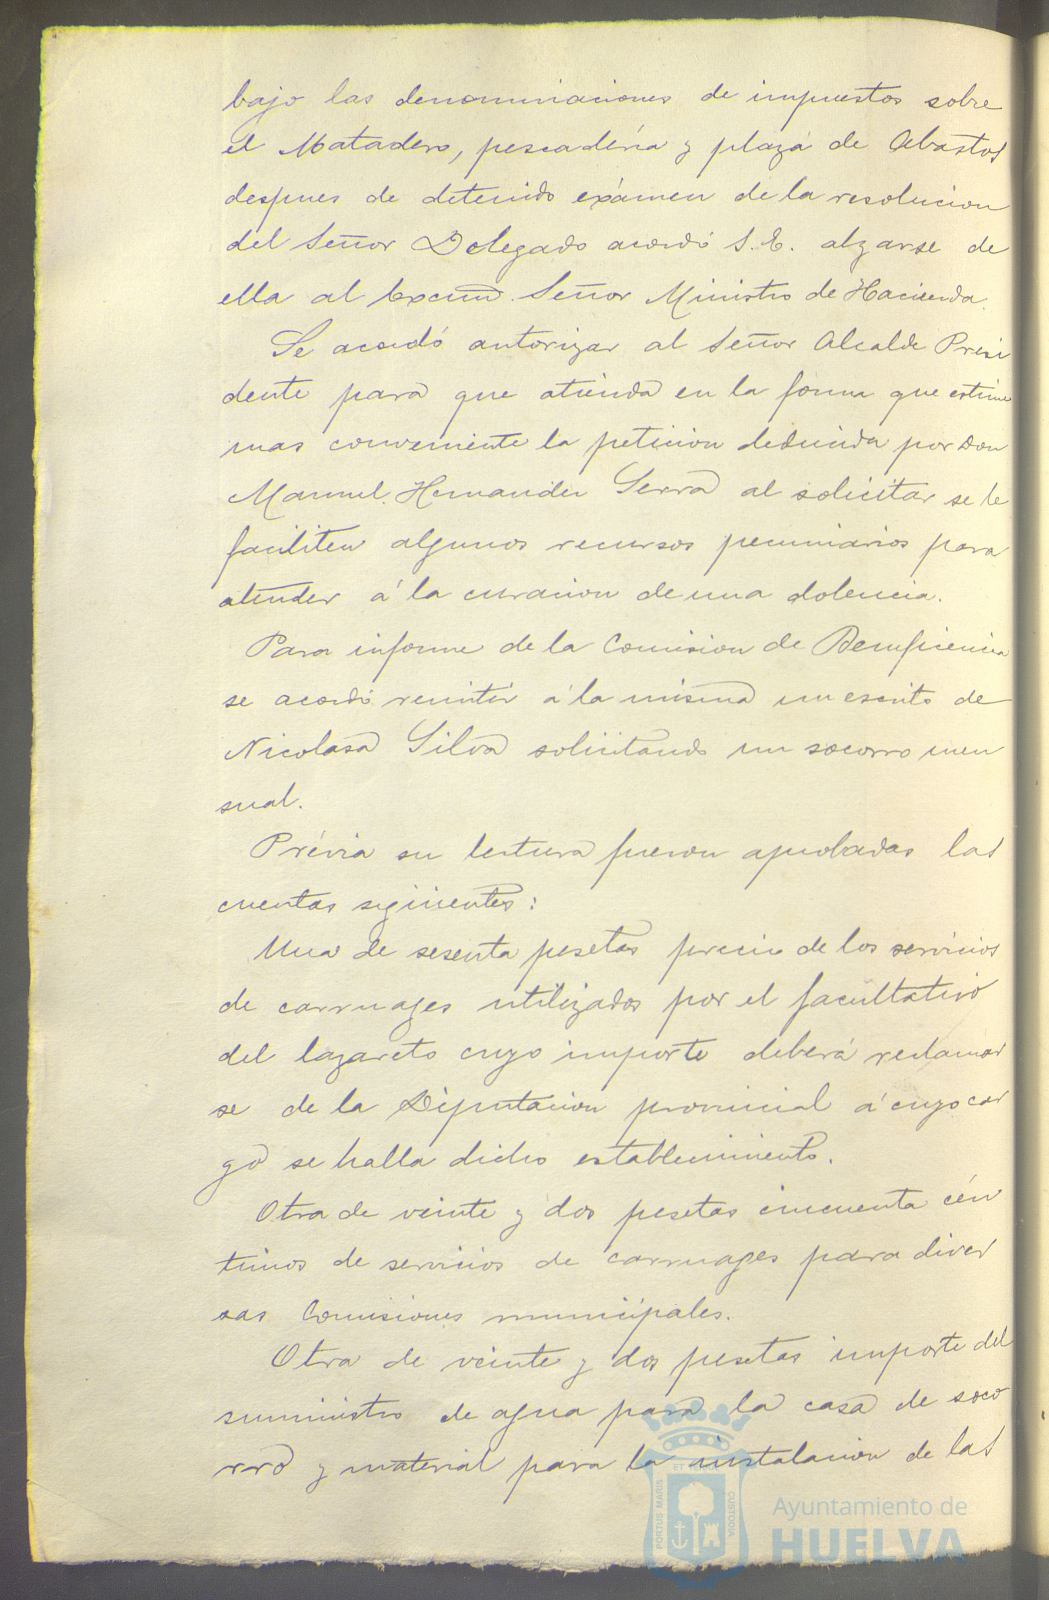 bajo las denominaciones de impuestos sobre
el Matadero, pescadería y plaza de Abastos
despues de detenido exámen de la resolucion
del Señor Delegado acordó S.E. alzarse de
ella al Excmo. Señor Ministro de Hacienda.
Se acordó autorizar al Señor Alcalde Presi
dente para que atienda en la forma que estime
mas conveniente la peticion deducida por Don
Manuel Hernandez Serra al solicitar se le
faciliten algunos recursos pecuniarios para
atender á la curacion de una dolencia.
Para informe de la Comision de Beneficencia
se acordó remitir á la misma un escrito de
Nicolasa Silva solicitando un socorro men
sual.
Prévia su lectura fueron aprobadas las
cuentas siguientes:
Una de sesenta pesetas precio de los servicios
de carruages utilizados por el facultativo
del lazareto cuyo importe deberá reclamar
se de la Diputacion provincial á cuyo car
go se halla dicho establecimiento.
Otra de veinte y dos pesetas cincuenta cén
timos de servicios de carruages para diver
sas Comisiones municipales.
Otra de veinte y dos pesetas importe del
suministro de agua para la casa de soco
rro y material para la instalacion de las
PORTUS MARIS ET TERRAE CUSTODIA
Ayuntamiento de
HUELVA